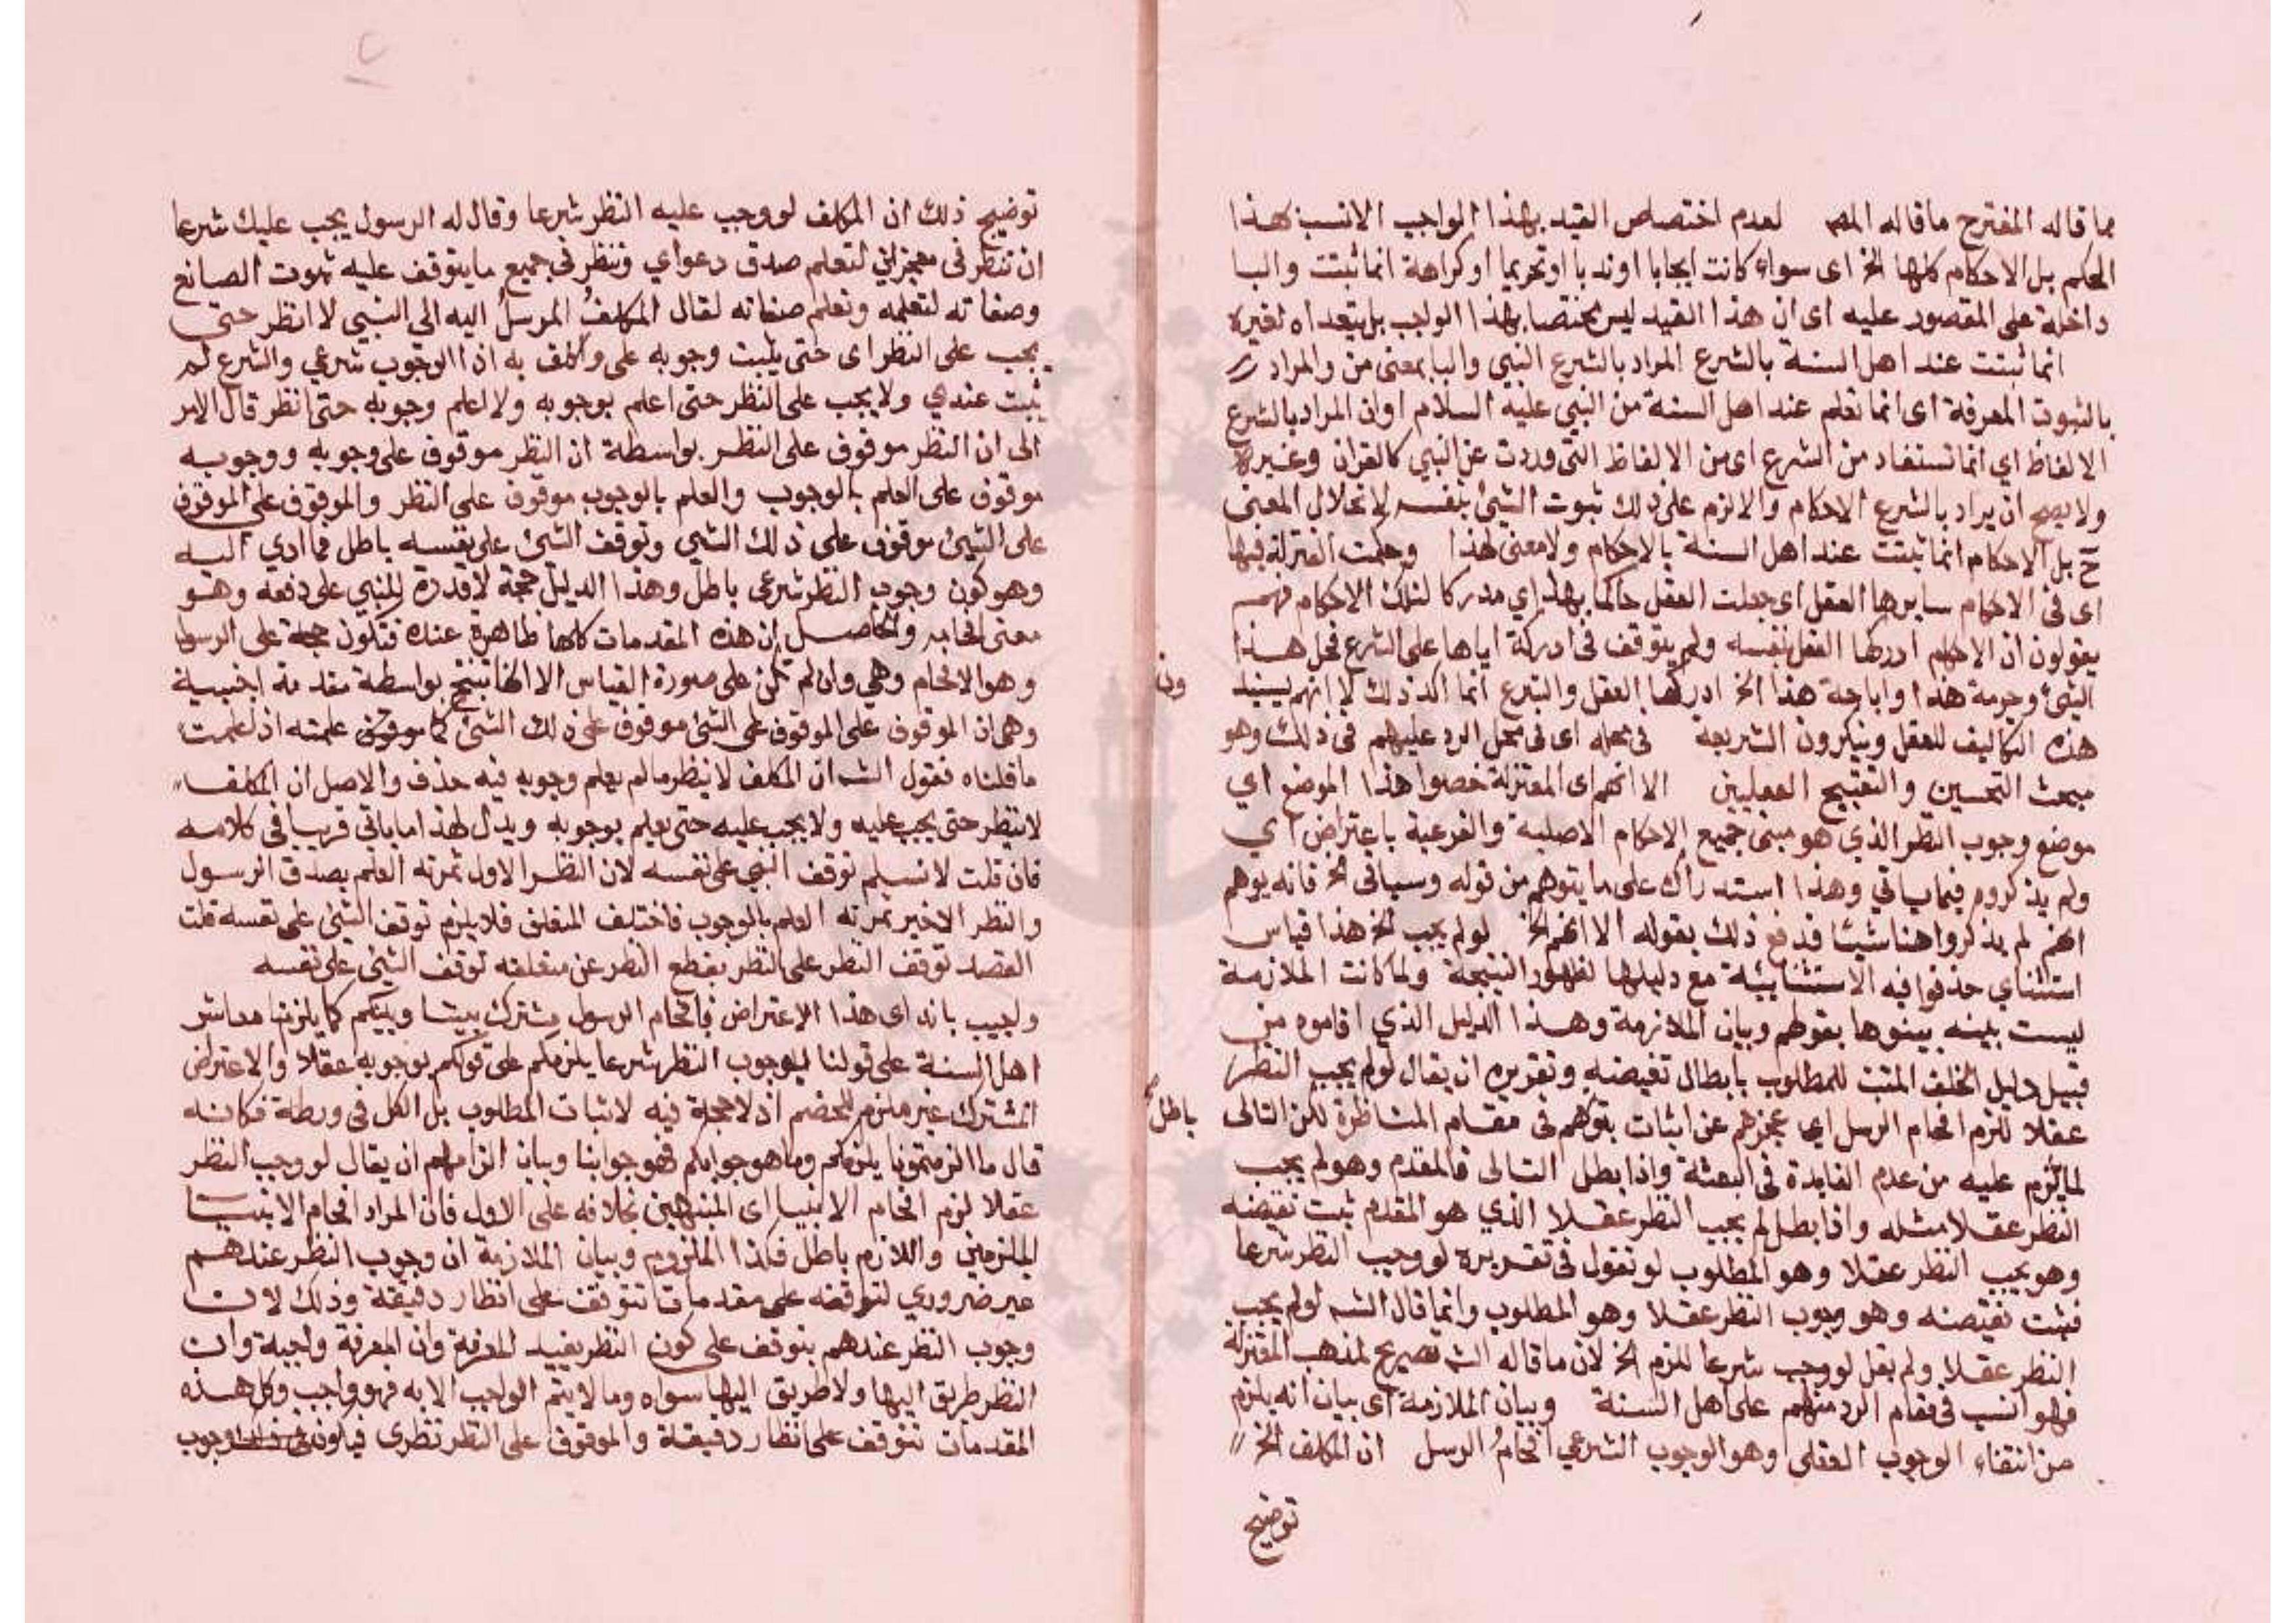 مما قاله المقترح ما قاله المص لعدم اختصاص القيد بهذا الواجب الانسب هذا
الحكم بل الاحكام كلها الخ اى سواء كانت ايجابا او ندبا او تحريما او كراهة انما ثبتت والبا
داخلة على المقصور عليه اى ان هذا القيد ليس مختصا بهذا الواجب بل يتعداه لغيره
انما ثبتت عند اهل السنة بالشرع المراد بالشرع النبي والبا بمعنى من والمراد
بالثبوت المعرفة اى انما تعلم عند اهل السنة من النبي عليه السلام او ان المراد بالشرع
الالفاظ اي انما تستفاد من الشرع اى من الالفاظ التى وردت عن النبي كالقران وغيره
ولا يصح ان يراد بالشرع الاحكام والا لزم على ذلك ثبوت الشئ بنفسه لانحلال المعنى
ح بل الاحكام انما ثبتت عند اهل السنة بالاحكام ولا معنى لهذا وحكمت المعتزلة فيها
اى فى الاحكام سايرها العقل اى جعلت العقل حاكما بهذا اي مدركا لتلك الاحكام فهم
يقولون ان الاحكام ادركها العقل بنفسه ولم يتوقف فى ادركه اياها على الشرع فحل هذا
الشئ وحرمة هذا واباحة هذا الخ ادركها العقل والشرع انما اكد ذلك لا انهم يسند
ون
هذه التكاليف للعقل وينكرون الشريعة فى محله اى فى محل الرد عليهم فى ذلك وهو
مبحث التحسين والتقبيح العقليين الا انهم اى المعتزلة خصوا هذا الموضع اي
موضع وجوب النظر الذي هو مبنى جميع الاحكام الاصلية والفرعية باعتراض اي
ولم يذكروه فيما ياتي وهذا استدراك على ما يتوهم من قوله وسياتى الخ فانه يوهم
انهم لم يذكروا هنا شيئا فدفع ذلك بقوله الا انهم الخ لو لم يجب الخ هذا قياس
استثناي حذفوا فيه الاستثنايية مع دليلها لظهور النتيجة ولما كانت الملازمة
ليست بينه بينوها بقولهم وبيان الملازمة وهذا الدليل الذي اقاموه من
قبيل دليل الخلف المثبت للمطلوب بابطال نقيضه وتقريره ان يقال لو لم يجب النظر
عقلا للزم افحام الرسل اي عجزهم عن اثبات نبوتهم فى مقام المناظرة لكن التالى
باطل
لما يلزم عليه من عدم الفايدة فى البعثة واذا بطل التالى فالمقدم وهو لم يجب
النظر عقلا مثله واذا بطل لم يجب النظر عقلا الذي هو المقدم ثبت نقيضه
وهو يجب النظر عقلا وهو المطلوب او نقول فى تقريره لو وجب النظر شرعا
فثبت نقيضه وهو وجوب النظر عقلا وهو المطلوب وانما قال الش لو لم يجب
النظر عقلا ولم يقل لو وجب شرعا للزم الخ لان ما قاله الش تصريح لمذهب المعتزلة
فهو انسب فى مقام الرد منهم على اهل السنة وبيان الملازمة اى بيان انه يلزم
من انتفاء الوجوب العقلى وهو الوجوب الشرعي افحام الرسل ان المكلف الخ
توضيح
توضيح ذلك ان المكلف لو وجب عليه النظر شرعا وقال له الرسول يجب عليك شرعا
ان تنظر فى معجزاتي لتعلم صدق دعواي وتنظر فى جميع ما يتوقف عليه ثبوت الصانع
وصفاته لتعلمه وتعلم صفاته لقال المكلف المرسل اليه الى النبي لا انظر حتى
يجب على النظر اى حتى يثبت وجوبه على واكلف به اذ الوجوب شرعي والشرع لم
يثبت عندي ولا يجب على النظر حتى اعلم بوجوبه ولا اعلم وجوبه حتى انظر قال الامر
الى ان النظر موقوف على النظر بواسطة ان النظر موقوف على وجوبه ووجوبه
موقوف على العلم بالوجوب والعلم بالوجوب موقوف على النظر والموقوف على الموقوف
على الشئ موقوف على ذلك الشئ وتوقف الشئ على نفسه باطل فما ادي اليه
وهو كون وجوب النظر شرعى باطل وهذا الدليل حجة لا قدرة للنبي على دفعه وهو
معنى افحامه والحاصل ان هذه المقدمات كلها ظاهرة عنده فتكون حجة على الرسول
وهو الافحام وهي وان لم تكن على صورة القياس الا انها تنتج بواسطة مقدمة اجنبية
وهى ان الموقوف على الموقوف على الشئ موقوف على ذلك الشئ كما علمته اذا علمت
ما قلناه فقول الش ان المكلف لا ينظر ما لم يعلم وجوبه فيه حذف والاصل ان المكلف
لا ينظر حتى يجب عليه ولا يجب عليه حتى يعلم بوجوبه ويدل لهذا ما ياتي قريبا فى كلامه
فان قلت لا نسلم توقف الشئ على نفسه لان النظر الاول ثمرته العلم بصدق الرسول
والنظر الاخير ثمرته العلم بالوجوب فاختلف المتعلق فلا يلزم توقف الشئ على نفسه قلت
القصد توقف النظر على النظر بقطع النظر عن متعلقه توقف الشئ على نفسه
واجيب بانه اى هذا الاعتراض فافحام الرسول مشترك بيننا وبينكم كما يلزمنا معاشر
اهل السنة على قولنا بوجوب النظر شرعا يلزمكم على قولكم بوجوبه عقلا والاعتراض
المشترك غير ملزم للخصم اذ لا حجة فيه لاثبات المطلوب بل الكل فى ورطة فكانه
قال ما الزمتمونا يلزمكم وما هو جوابكم فهو جوابنا وبيان الزامهم ان يقال لو وجب النظر
عقلا لزم افحام الانبيا اى المنتهين بخلافه على الاول فان المراد افحام الانبيا
الملزمين واللازم باطل فكذا الملزوم وبيان الملازمة ان وجوب النظر عندهم
غير ضروري لتوقفه على مقدمات تتوقف على انظار دقيقة وذلك لان
وجوب النظر عندهم يتوقف على كون النظر يفيد المعرفة وان المعرفة واجبة وان
النظر طريق اليها ولا طريق اليها سواه وما لا يتم الواجب الا به فهو واجب وكل هذه
المقدمات تتوقف على انظار دقيقة والموقوف على النظر نظرى فيكون وجوب